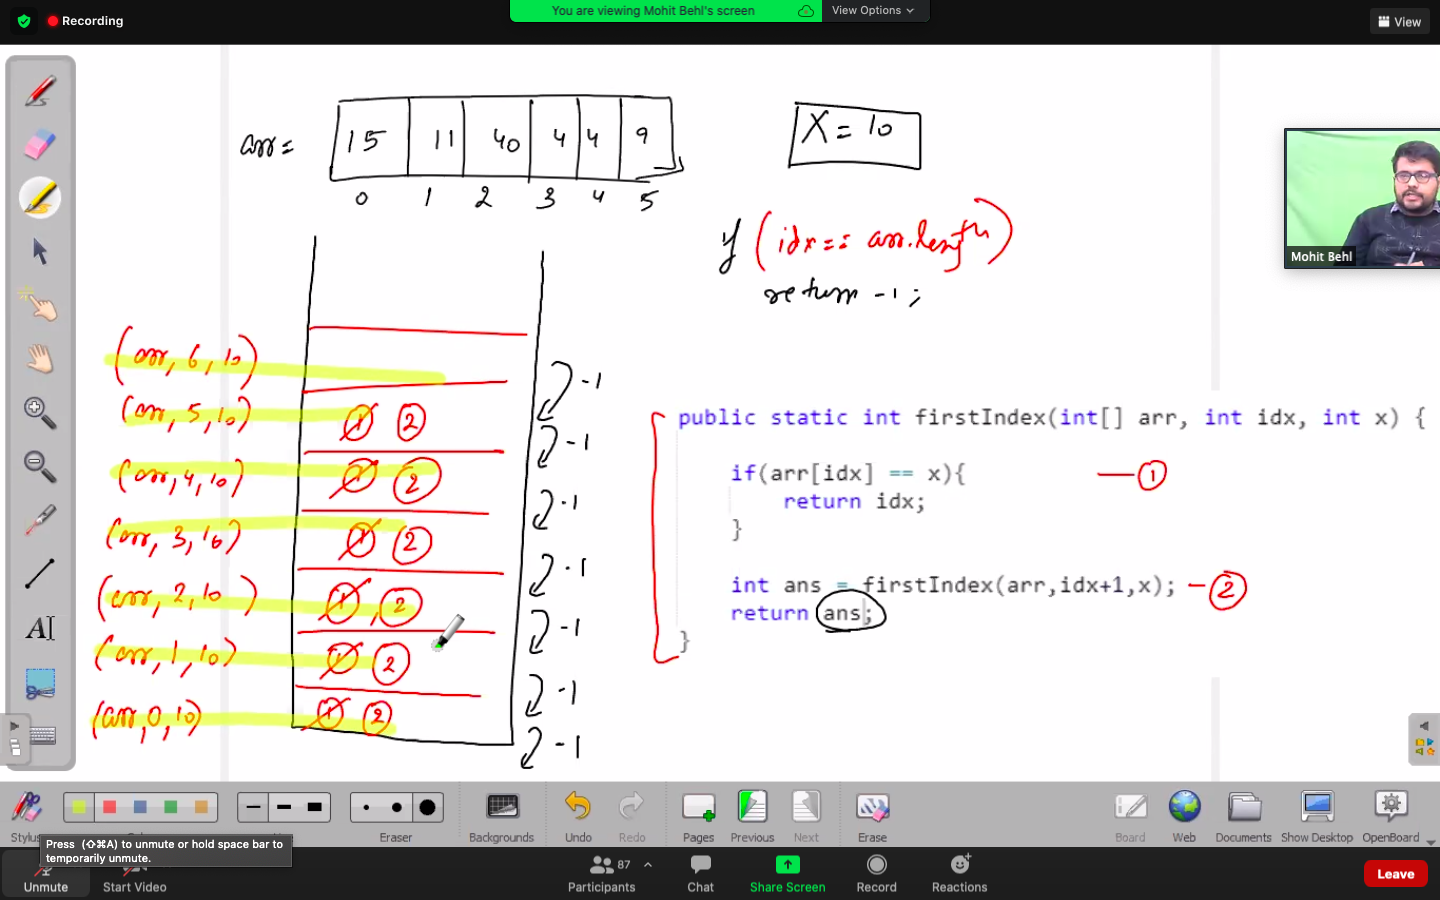 Recording
You are viewing Mohit Behl's screen
View Options
View
arr= 15 11 40 4 4 9
0 1 2 3 4 5
X = 10
if (idx == arr.length)
return -1;
Mohit Behl
(arr, 6, 10)
-1
(arr, 5, 10) 1 2
-1
(arr, 4, 10) 1 2
-1
(arr, 3, 10) 1 2
-1
(arr, 2, 10) 1, 2
-1
(arr, 1, 10) 1 2
-1
(arr, 0, 10) 1 2
-1
public static int firstIndex(int[] arr, int idx, int x) {
if(arr[idx] == x){ — 1
return idx;
}
int ans = firstIndex(arr,idx+1,x); - 2
return ans;
}
Stylus
Eraser
Backgrounds
Undo
Redo
Pages
Previous
Next
Erase
Board
Web
Documents
Show Desktop
OpenBoard
Press (⇧⌘A) to unmute or hold space bar to
temporarily unmute.
Unmute
Start Video
87
Participants
Chat
Share Screen
Record
Reactions
Leave